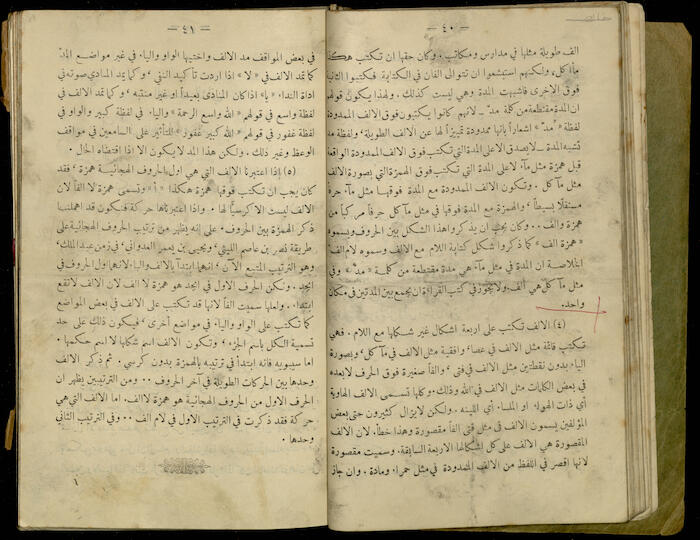 — ٤٠ —
الف طويلة مثلها في مدارس ومكاتب. وكان حقها ان تكتب هكذا
مااكل، ولكنهم استبشعوا ان تتوالى الفان في الكتابة فكتبوا الثانية
فوق الاخرى فاشبهت المدة وهي ليست كذلك. ولهذا يكون قولهم
ان المدة مقتطعة من كلمة مدّ ـ لانهم كانوا يكتبون فوق الالف الممدودة
لفظة «مدّ» اشعاراً بانها ممدودة تمييزاً لها عن الالف الطويلة، ولفظة مد
تشبه المدة ـ لا يصدق الا على المدة التي تكتب فوق الالف الممدودة الواقعة
قبل همزة مثل مآء لا على المدة التي تكتب فوق الهمزة التي بصورة الالف
مثل مآكل. وتكون الالف الممدودة مع المدة فوقها مثل مآء حرفاً
مستقلاً بسيطاً، والهمزة مع المدة فوقها في مثل مآكل حرفاً مركباً من
همزة والف.. وكان يجب ان يذكروا هذا الشكل بين الحروف ويسموه
«همزة الف» كما ذكروا شكل كتابة اللام مع الالف وسموه لام الف
الخلاصة ان المدة في مثل مآء هي مدة مقتطعة من كلمة «مدّ» وفي
مثل مآكل هي الف. ولا يجوز في كتب القراءة ان يجمع بين المدتين في مكان
واحد.
(٤) الالف تكتب على اربعة اشكال غير شكلها مع اللام. فهي
تكتب قائمة مثل الالف في عصا، وافقية مثل الالف في مآكل، وبصورة
الياء بدون نقطتين مثل الالف في فتى، والفاً صغيرة فوق الحرف لا بعده
في بعض الكلمات مثل الالف في الله وذلك. وكلها تسمى الالف الهاوية
أي ذات الهواء او الملساء أي اللينة. ولكن لا يزال كثيرون حتى بعض
المؤلفين يسمون الالف في مثل فتى الفاً مقصورة وهذا خطأ. لان الالف
المقصورة هي الالف على كل اشكالها الاربعة السابقة. وسميت مقصورة
لانها اقصر في اللفظ من الالف الممدودة في مثل حمراء ومادة. وان جاز
— ٤١ —
في بعض المواقف مد الالف واختيها الواو والياء في غير مواضع المدّ
كما تمد الالف في «لا» اذا اردت تأكيد النفي، وكما يمد المنادي صوته في
اداة النداء «يا» اذا كان المنادى بعيداً او غير منتبه، وكما تمد الالف في
لفظة واسع في قولهم «الله واسع الرحمة» والياء في لفظة كبير والواو في
لفظة غفور في قولهم «الله كبير غفور» للتأثير على السامعين في مواقف
الوعظ وغير ذلك. ولكن هذا المد لا يكون الا اذا اقتضاه الحال.
(٥) اذا اعتبرنا الالف التي هي اول الحروف الهجائية همزة، فقد
كان يجب ان تكتب فوقها همزة هكذا «أ» وتسمى همزة لا الفاً لان
الالف ليست الا كرسياً لها. واذا اعتبرناها حركة فنكون قد اهملنا
ذكر الهمزة بين الحروف. على إنه يظهر من ترتيب الحروف الهجائية على
طريقة نصر بن عاصم الليثي، ويحيى بن يعمر العدواني، في زمن عبد الملك،
وهو الترتيب المتبع الآن، انهما ابتدآ بالالف والباء لانهما اول الحروف في
ابجد. ولكن الحرف الاول في ابجد هو همزة لا الف لان الالف لا تقع
ابتداء. ولعلها سميت الفاً لانها قد تكتب على الالف في بعض المواضع
كما تكتب على الواو والياء في مواضع أخرى، فيكون ذلك على حد
تسمية الكل باسم الجزء، وتكون الالف اسم شكلها لا اسم حكمها.
اما سيبويه فانه ابتدأ في ترتيبه بالهمزة بدون كرسي. ثم ذكر الالف
وحدها بين الحركات الطويلة في آخر الحروف.. ومن الترتيبين يظهر ان
الحرف الاول من الحروف الهجائية هو همزة لا الف. اما الالف التي هي
حركة فقد ذكرت في الترتيب الاول في لام الف... وفي الترتيب الثاني
وحدها.